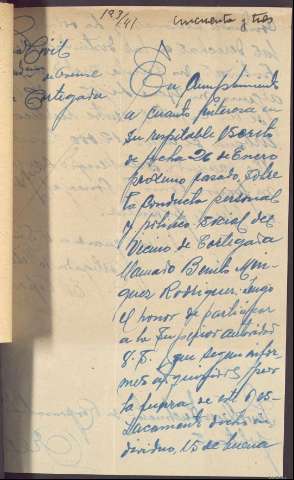 193/41
cincuenta y tres
Civil
de Orense
Cortegada
En Cumplimiento
a cuanto interesa en
su respetable escrito
de fecha 26 de Enero
próximo pasado, sobre
la conducta personal
y politico social del
Vecino de Cortegada
llamado Benito
Rodriguez, tengo
el honor de participar
a la Superior autoridad
V.S., que segun infor
mes adquiridos por
la fuerza de este Des-
tacamento dicho in
dividuo, es de buena